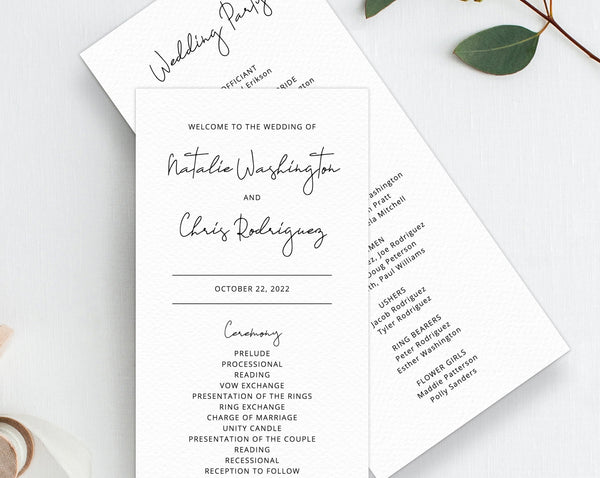 WELCOME TO THE WEDDING OF
Natalie Washington
AND
Chris Rodriguez
OCTOBER 22, 2022
Ceremony
PRELUDE
PROCESSIONAL
READING
VOW EXCHANGE
PRESENTATION OF THE RINGS
RING EXCHANGE
CHARGE OF MARRIAGE
UNITY CANDLE
PRESENTATION OF THE COUPLE
READING
RECESSIONAL
RECEPTION TO FOLLOW
Wedding Party
Erikson
Pratt
Mitchell
Joe Rodriguez
Doug Peterson
Paul Williams
USHERS
Jacob Rodriguez
Tyler Rodriguez
RING BEARERS
Peter Rodriguez
Esther Washington
FLOWER GIRLS
Maddie Patterson
Polly Sanders